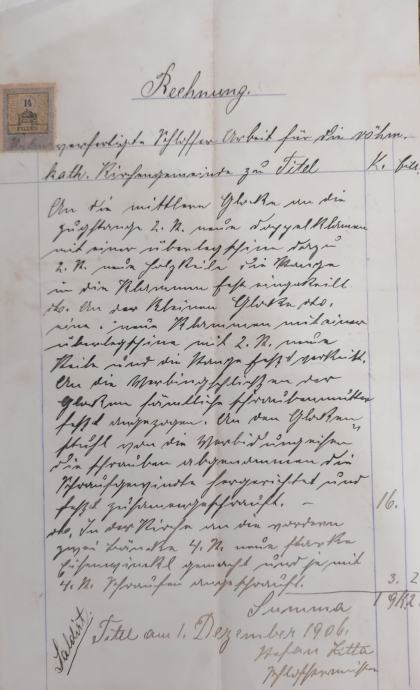 Rechnung.
14
FILLÉR
verfertigte Schlosser Arbeit für die röhm.
kath. Kirchengemeinde zu Titel K. hill.
An die mittlern Glocke an die
zugstange 2. N. neue doppelklamen
mit einer überlegschine dazu
2. N. neue holzkeile die Stange
in die Klammen fest eingekeilt.
dto. An der kleinen Glocke dto.
eine neue Klammen mit einer
überlegschine mit 2. N. neue
Keile und die Stange fest verkeilt.
An die Verbingschließen der
Glocken sämtliche schraubenmutter
fest angezogen. An den Glocken
stuhl von die Verbiddungeisen
die schrauben abgenommen die
Schraufgewinde hergerichtet und
fest zusamengeschrauft. — 16.
dto. In der Kirche an die vordern
zwei Bäncke 4. N. neue starke
Eisenwinckl gemacht und je mit
4. N. Schraufen angeschrauft. 3. 2
Summa 19K2
Saldirt.
Titel am 1. Dezember 1906.
Stefan
Schlossermeister